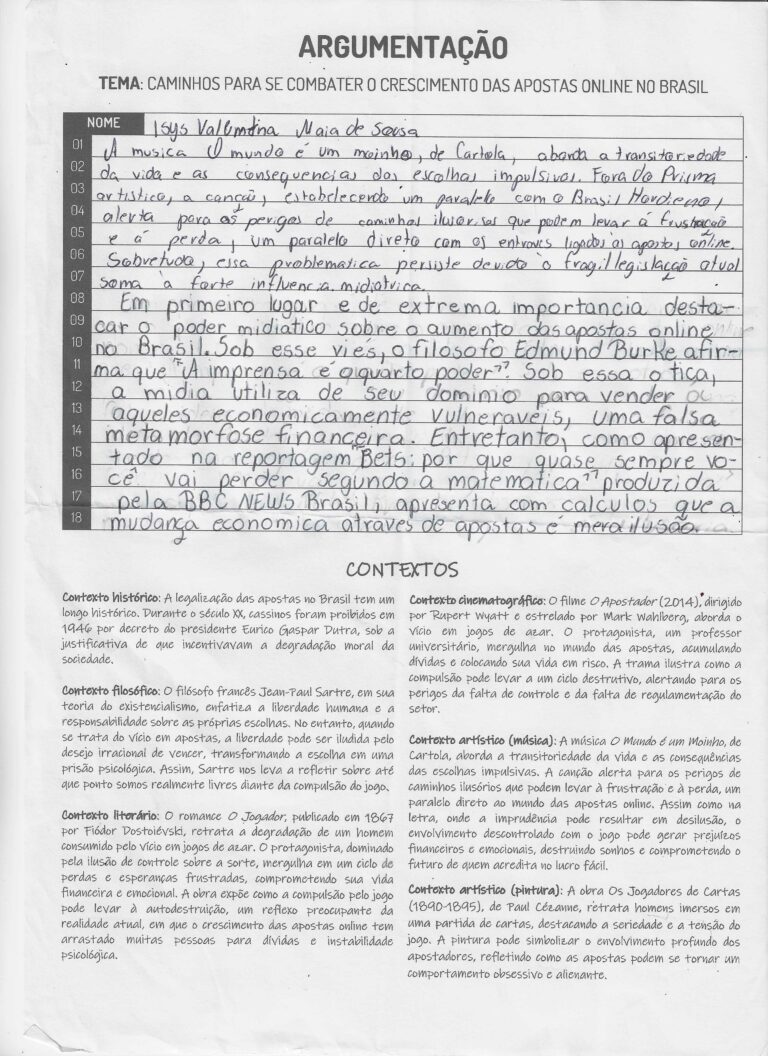 ARGUMENTAÇÃO
TEMA: CAMINHOS PARA SE COMBATER O CRESCIMENTO DAS APOSTAS ONLINE NO BRASIL
NOME Isys Valentina Maia de Sousa
01 A musica O mundo é um moinho, de Cartola, aborda a transitoriedade
02 da vida e as consequencias das escolhas impulsivas. Fora do Prisma
03 artistico, a canção, estabelecendo um paralelo com o Brasil Hordieno,
04 alerta para os perigos de caminhos ilusorios que podem levar á frustração
05 e á perda, um paralelo direto com os entraves ligados as apostas online.
06 Sobretudo, essa problematica persiste devido à fragil legislação atual
07 soma à forte influencia midiatrica.
08 Em primeiro lugar e de extrema importancia desta-
09 car o poder midiatico sobre o aumento das apostas online
10 no Brasil. Sob esse viés, o filosofo Edmund Burke afir-
11 ma que "A imprensa é o quarto poder". Sob essa otica,
12 a midia utiliza de seu dominio para vender
13 aqueles economicamente vulneraveis, uma falsa
14 metamorfose financeira. Entretanto, como apresen-
15 tado na reportagem "Bets: por que quase sempre vo-
16 cê vai perder segundo a matematica" produzida
17 pela BBC NEWS Brasil, apresenta com calculos que a
18 mudança economica atraves de apostas é mera ilusão.
CONTEXTOS
Contexto histórico: A legalização das apostas no Brasil tem um
longo histórico. Durante o século XX, cassinos foram proibidos em
1946 por decreto do presidente Eurico Gaspar Dutra, sob a
justificativa de que incentivavam a degradação moral da
sociedade.
Contexto filosófico: O filósofo francês Jean-Paul Sartre, em sua
teoria do existencialismo, enfatiza a liberdade humana e a
responsabilidade sobre as próprias escolhas. No entanto, quando
se trata do vício em apostas, a liberdade pode ser iludida pelo
desejo irracional de vencer, transformando a escolha em uma
prisão psicológica. Assim, Sartre nos leva a refletir sobre até
que ponto somos realmente livres diante da compulsão do jogo.
Contexto literário: O romance O Jogador, publicado em 1867
por Fiódor Dostoiévski, retrata a degradação de um homem
consumido pelo vício em jogos de azar. O protagonista, dominado
pela ilusão de controle sobre a sorte, mergulha em um ciclo de
perdas e esperanças frustradas, comprometendo sua vida
financeira e emocional. A obra expõe como a compulsão pelo jogo
pode levar à autodestruição, um reflexo preocupante da
realidade atual, em que o crescimento das apostas online tem
arrastado muitas pessoas para dívidas e instabilidade
psicológica.
Contexto cinematográfico: O filme O Apostador (2014), dirigido
por Rupert Wyatt e estrelado por Mark Wahlberg, aborda o
vício em jogos de azar. O protagonista, um professor
universitário, mergulha no mundo das apostas, acumulando
dívidas e colocando sua vida em risco. A trama ilustra como a
compulsão pode levar a um ciclo destrutivo, alertando para os
perigos da falta de controle e da falta de regulamentação do
setor.
Contexto artístico (música): A música O Mundo é um Moinho, de
Cartola, aborda a transitoriedade da vida e as consequências
das escolhas impulsivas. A canção alerta para os perigos de
caminhos ilusórios que podem levar à frustração e à perda, um
paralelo direto ao mundo das apostas online. Assim como na
letra, onde a imprudência pode resultar em desilusão, o
envolvimento descontrolado com o jogo pode gerar prejuízos
financeiros e emocionais, destruindo sonhos e comprometendo o
futuro de quem acredita no lucro fácil.
Contexto artístico (pintura): A obra Os Jogadores de Cartas
(1890-1895), de Paul Cézanne, retrata homens imersos em
uma partida de cartas, destacando a seriedade e a tensão do
jogo. A pintura pode simbolizar o envolvimento profundo dos
apostadores, refletindo como as apostas podem se tornar um
comportamento obsessivo e alienante.